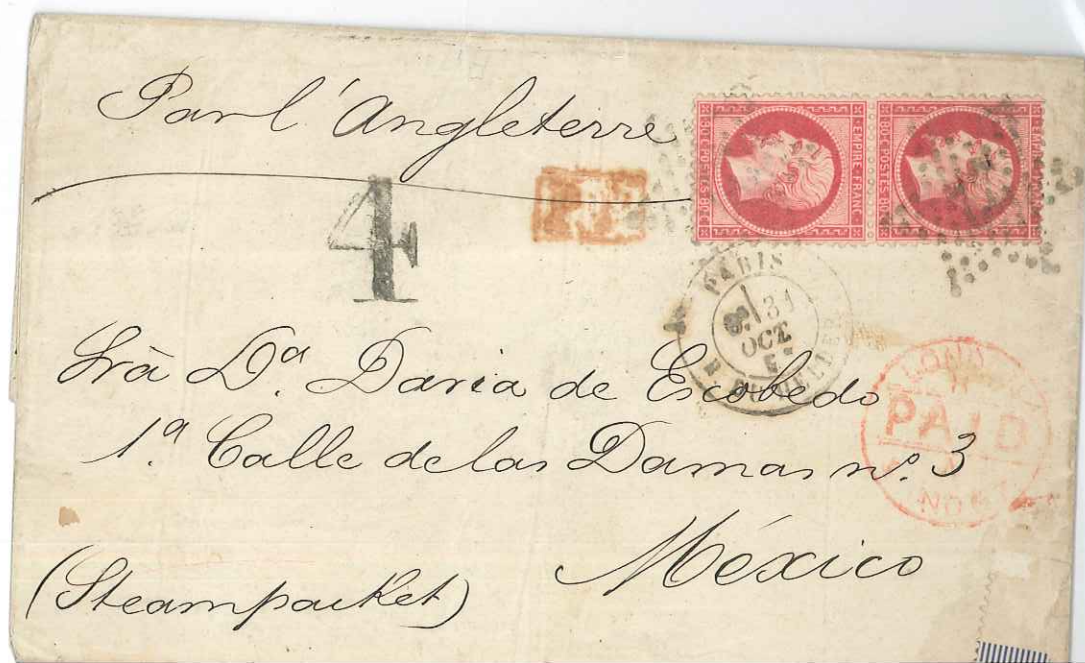 Par l'Angleterre
EMPIRE FRANC
80 C POSTES 80 C
EMPIRE FRANC
80 C POSTES 80 C
4
PARIS
31
OCT
LOND
PAID
NO
Srā Dª Daria de Escobedo
1ª Calle de las Damas nº. 3
México
(Steampacket)